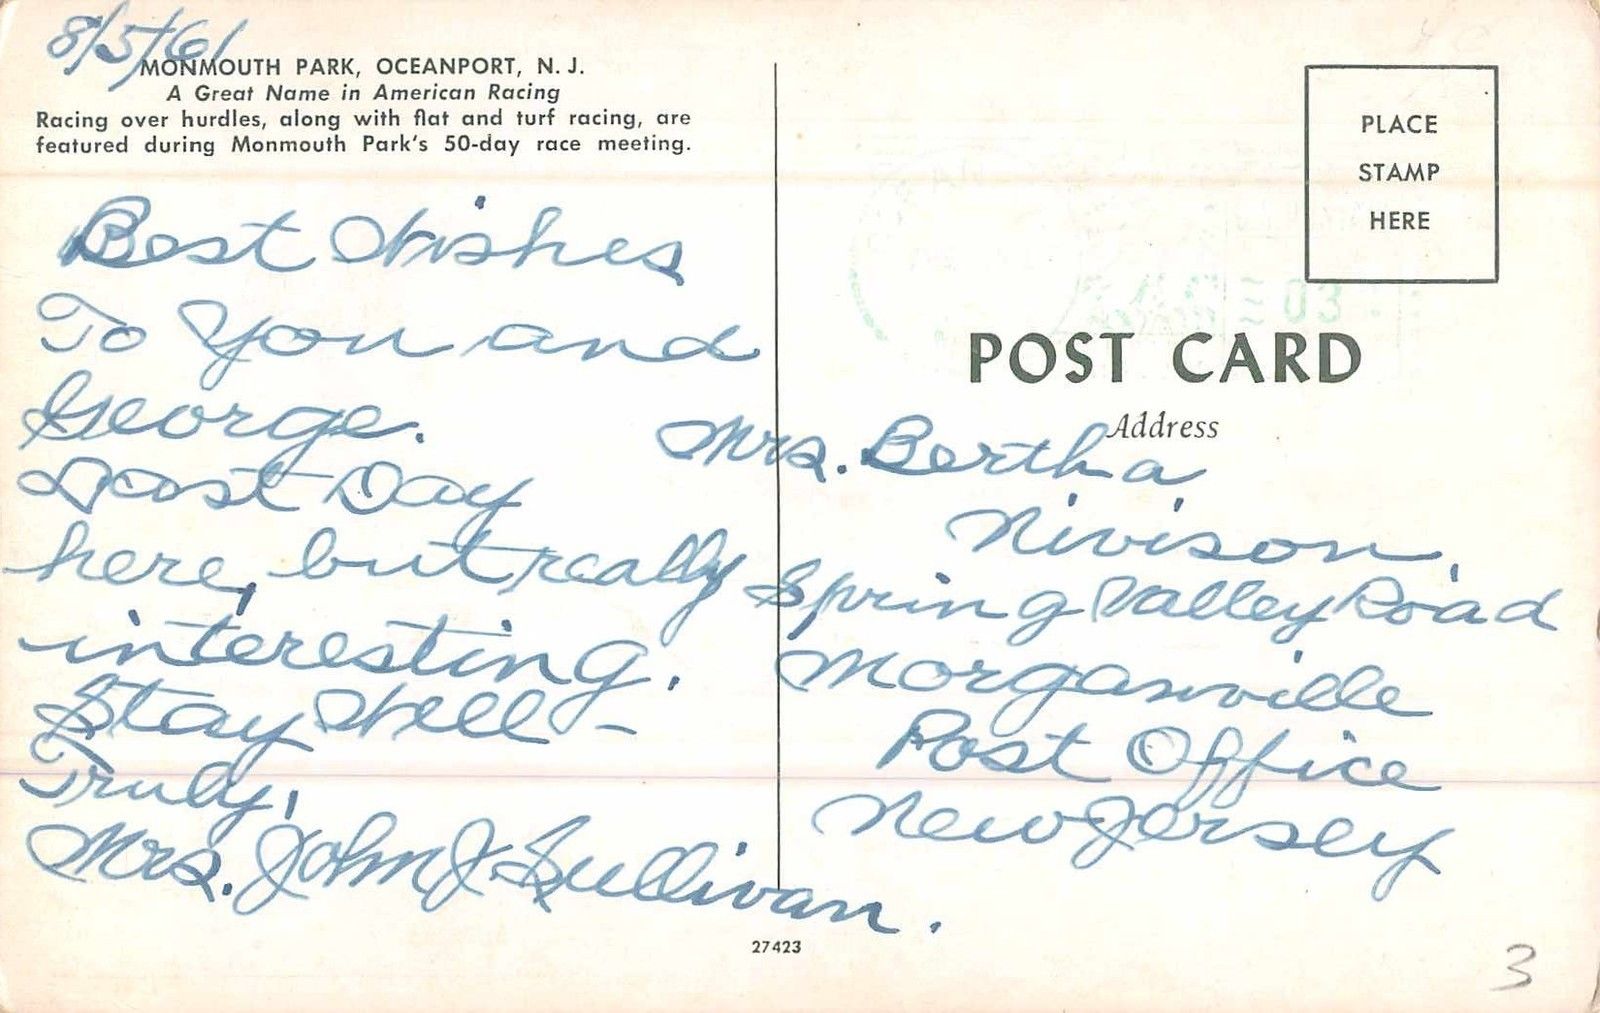 8/5/61
MONMOUTH PARK, OCEANPORT, N. J.
A Great Name in American Racing
Racing over hurdles, along with flat and turf racing, are
featured during Monmouth Park's 50-day race meeting.
Best Wishes
To You and
George.
Last Day
here, but really
interesting.
Stay Well –
Truly,
Mrs. John J. Sullivan.
PLACE
STAMP
HERE
POST CARD
Address
Mrs. Bertha
Nivison,
Spring Valley Road
Morganville
Post Office
New Jersey
27423
3